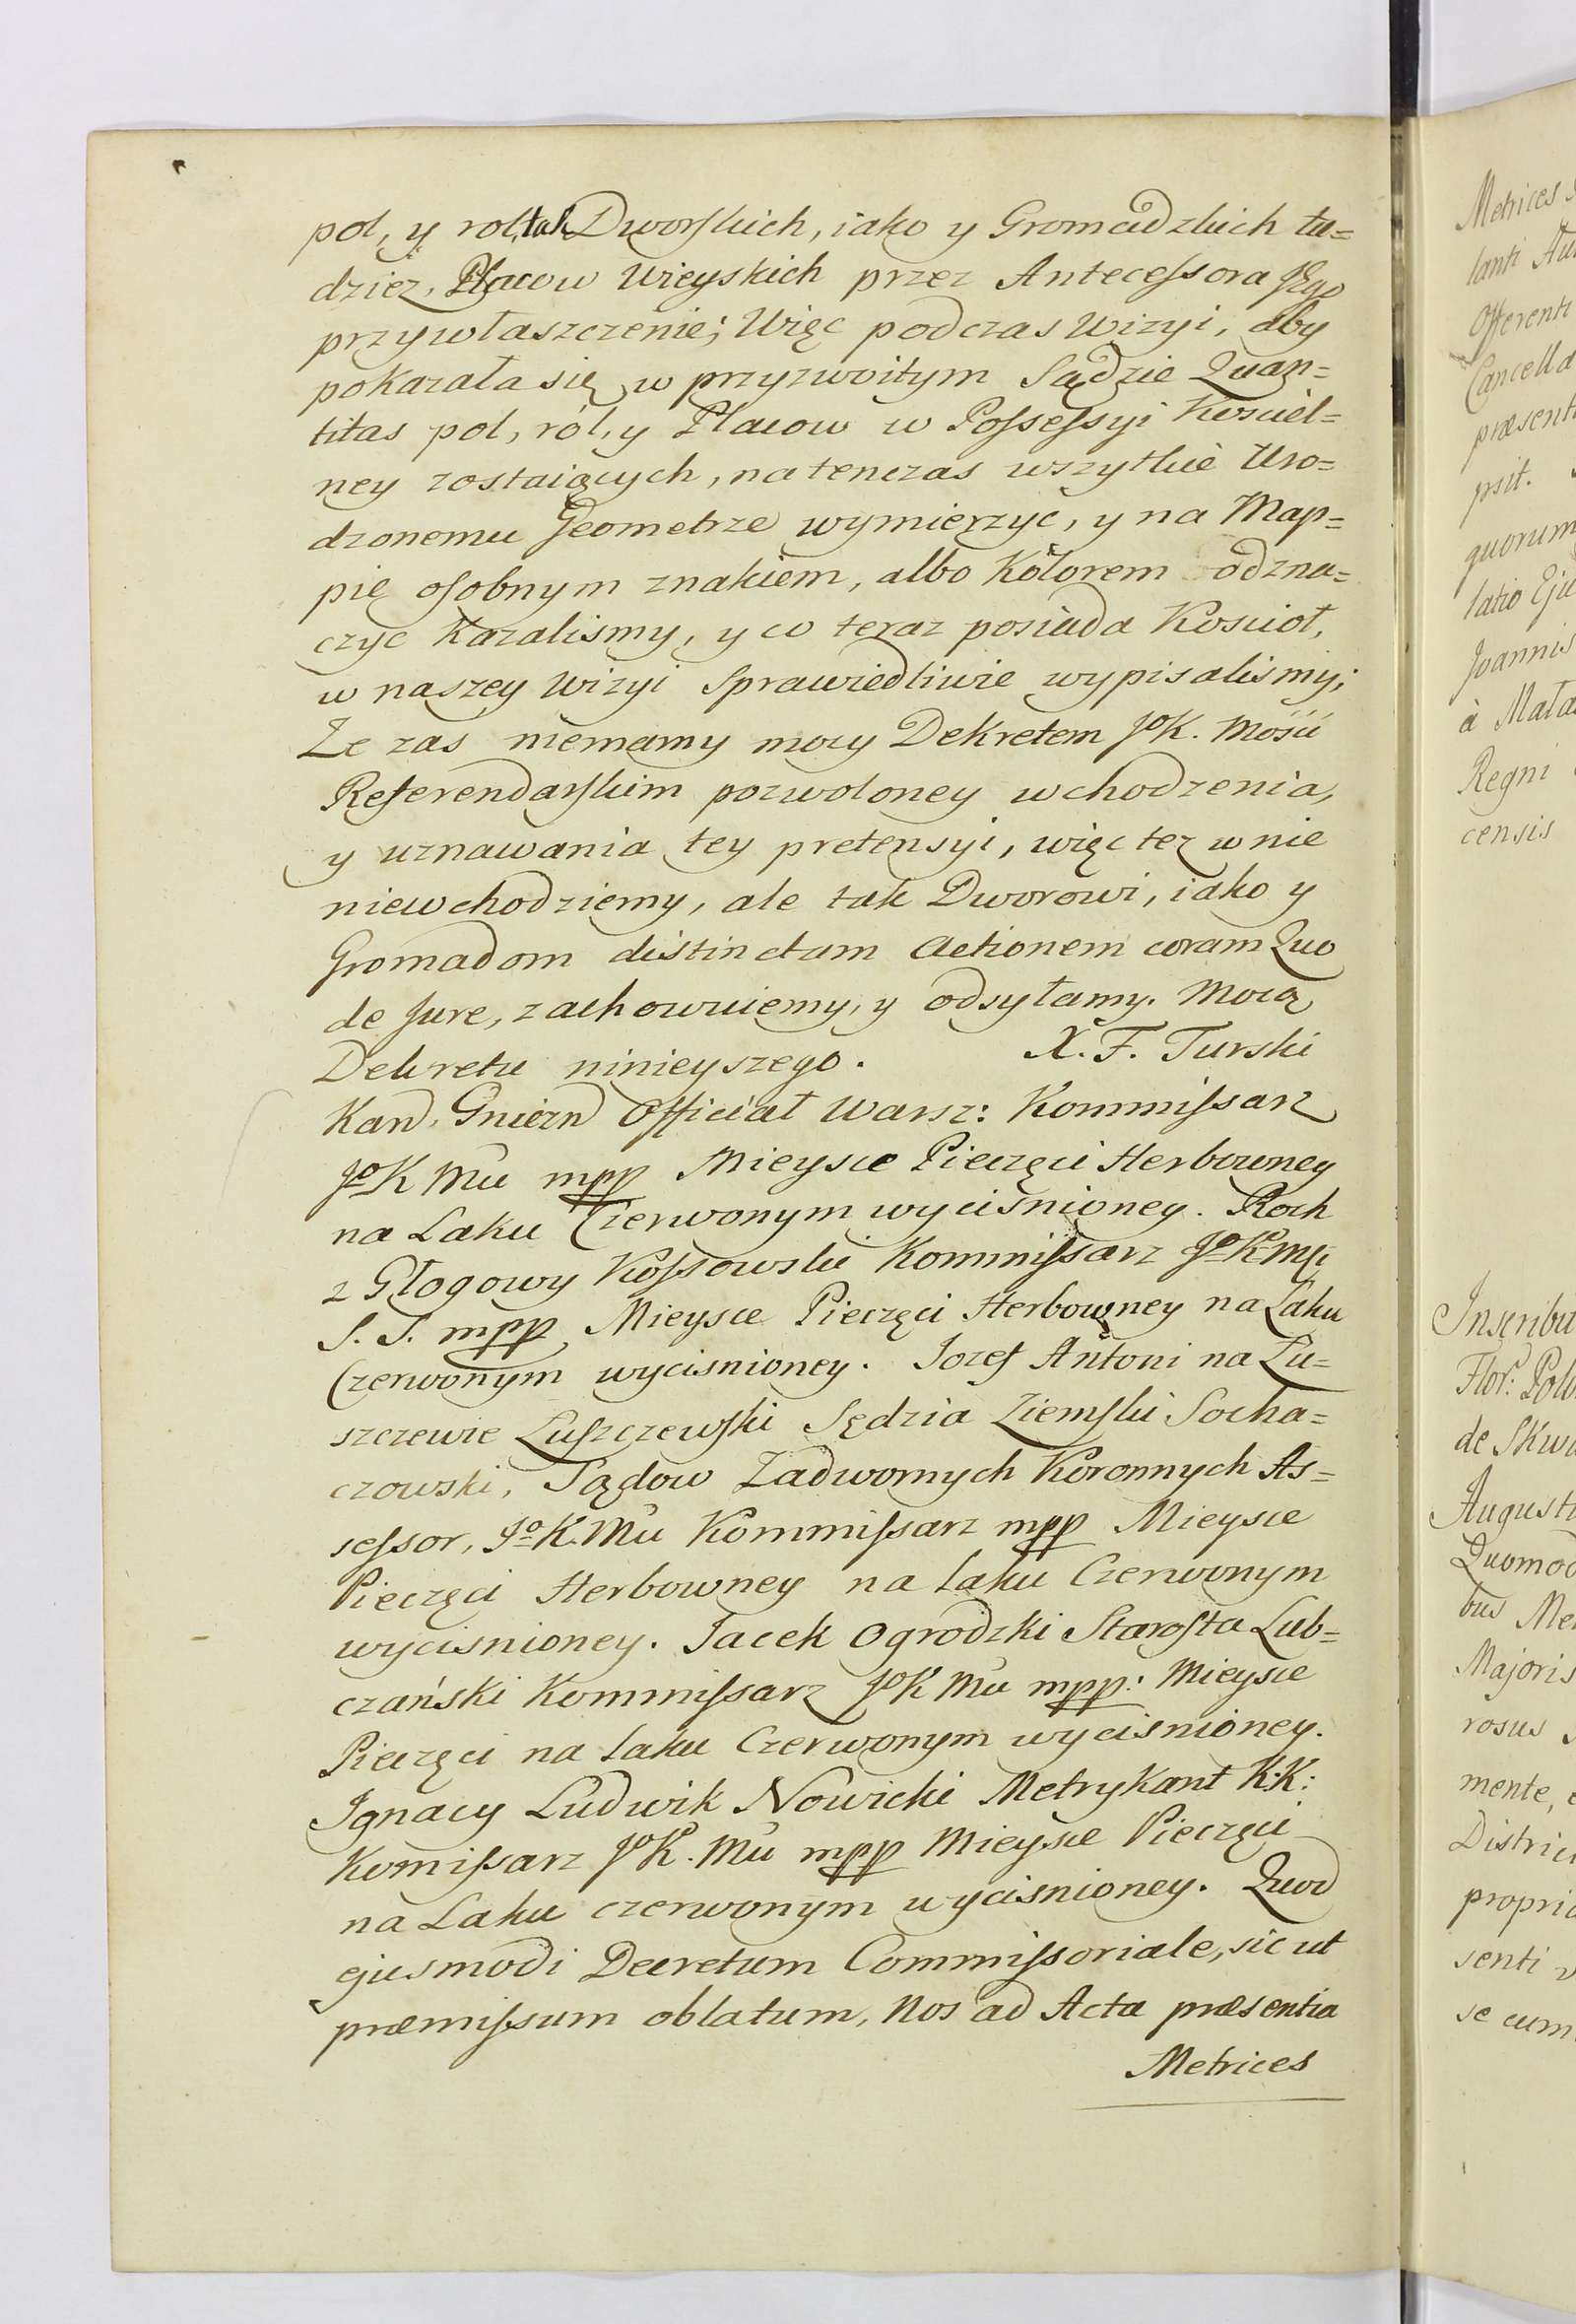 pol, y rol, tak Dworskich, iako y Gromadzkich tu=
dziez, Placow Wieyskich przez Antecessora Jego
przywłaszczenie; Więc podczas Wizyi, aby
pokazała się w przyzwoitym Sądzie Quan=
titas pol, ról, y Placow w Possessyi Kosciel=
ney zostaiących, natenczas wszytkie Uro=
dzonemu Geometrze wymierzyć, y na Map=
pię osobnym znakiem, albo Kolorem odzna=
czyc Kazalismy, y co teraz posiada Kościoł,
w naszey Wizyi Sprawiedliwie wypisalismy;
Ze zas niemamy mocy Dekretem JoK. Mości
Referendarskim pozwoloney wchodzenia,
y uznawania tey pretensyi, więc tez w nie
niewchodziemy, ale tak Dworowi, iako y
Gromadom distinctam Actionem coram Quo
de Jure, zachowuiemy, y odsyłamy. Mocą
Dekretu ninieyszego. X. F. Turski
Kan. Gniezn Officiał Warsz: Kommissarz
JoK Mci mpp Mieysce Pieczęci Herbowney
na Laku Czerwonym wyciśnioney. Roch
z Głogowy Kossowski Kommissarz JoKMci
S. S. mpp Mieysce Pieczęci Herbowney na Laku
Czerwonym wycisnioney. Jozef Antoni na Lu=
szczewie Luszczewski Sędzia Ziemski Socha=
czowski, Sądow Zadwornych Koronnych As=
sessor, JoK.Mci Kommissarz mpp Mieysce
Pieczęci Herbowney na laku Czerwonym
wycisnioney. Jacek Ogrodzki Starosta Lub=
czański Kommissarz JoK Mci mpp: Mieysce
Pieczęci na laku Czerwonym wycisnioney.
Ignacy Ludwik Nowicki Metrykant K:K:
Komissarz JoK. Mci mpp Mieysce Pieczęci
na Laku czerwonym wycisnioney. Quod
ejusmodi Decretum Commissoriale, sic ut
præmissum oblatum, Nos ad Acta præsentia
Metrices
Metrices
lanti
Offerenti
Cancella
præsenti
psit.
quorum
latio Eju
Joannis
à Mała
Regni
censis
Inscribu
Flor: Polo
de Skwa
Augusti
Quomod
bus Me
Majoris
rosus
mente,
Distric
propria
senti
se cum